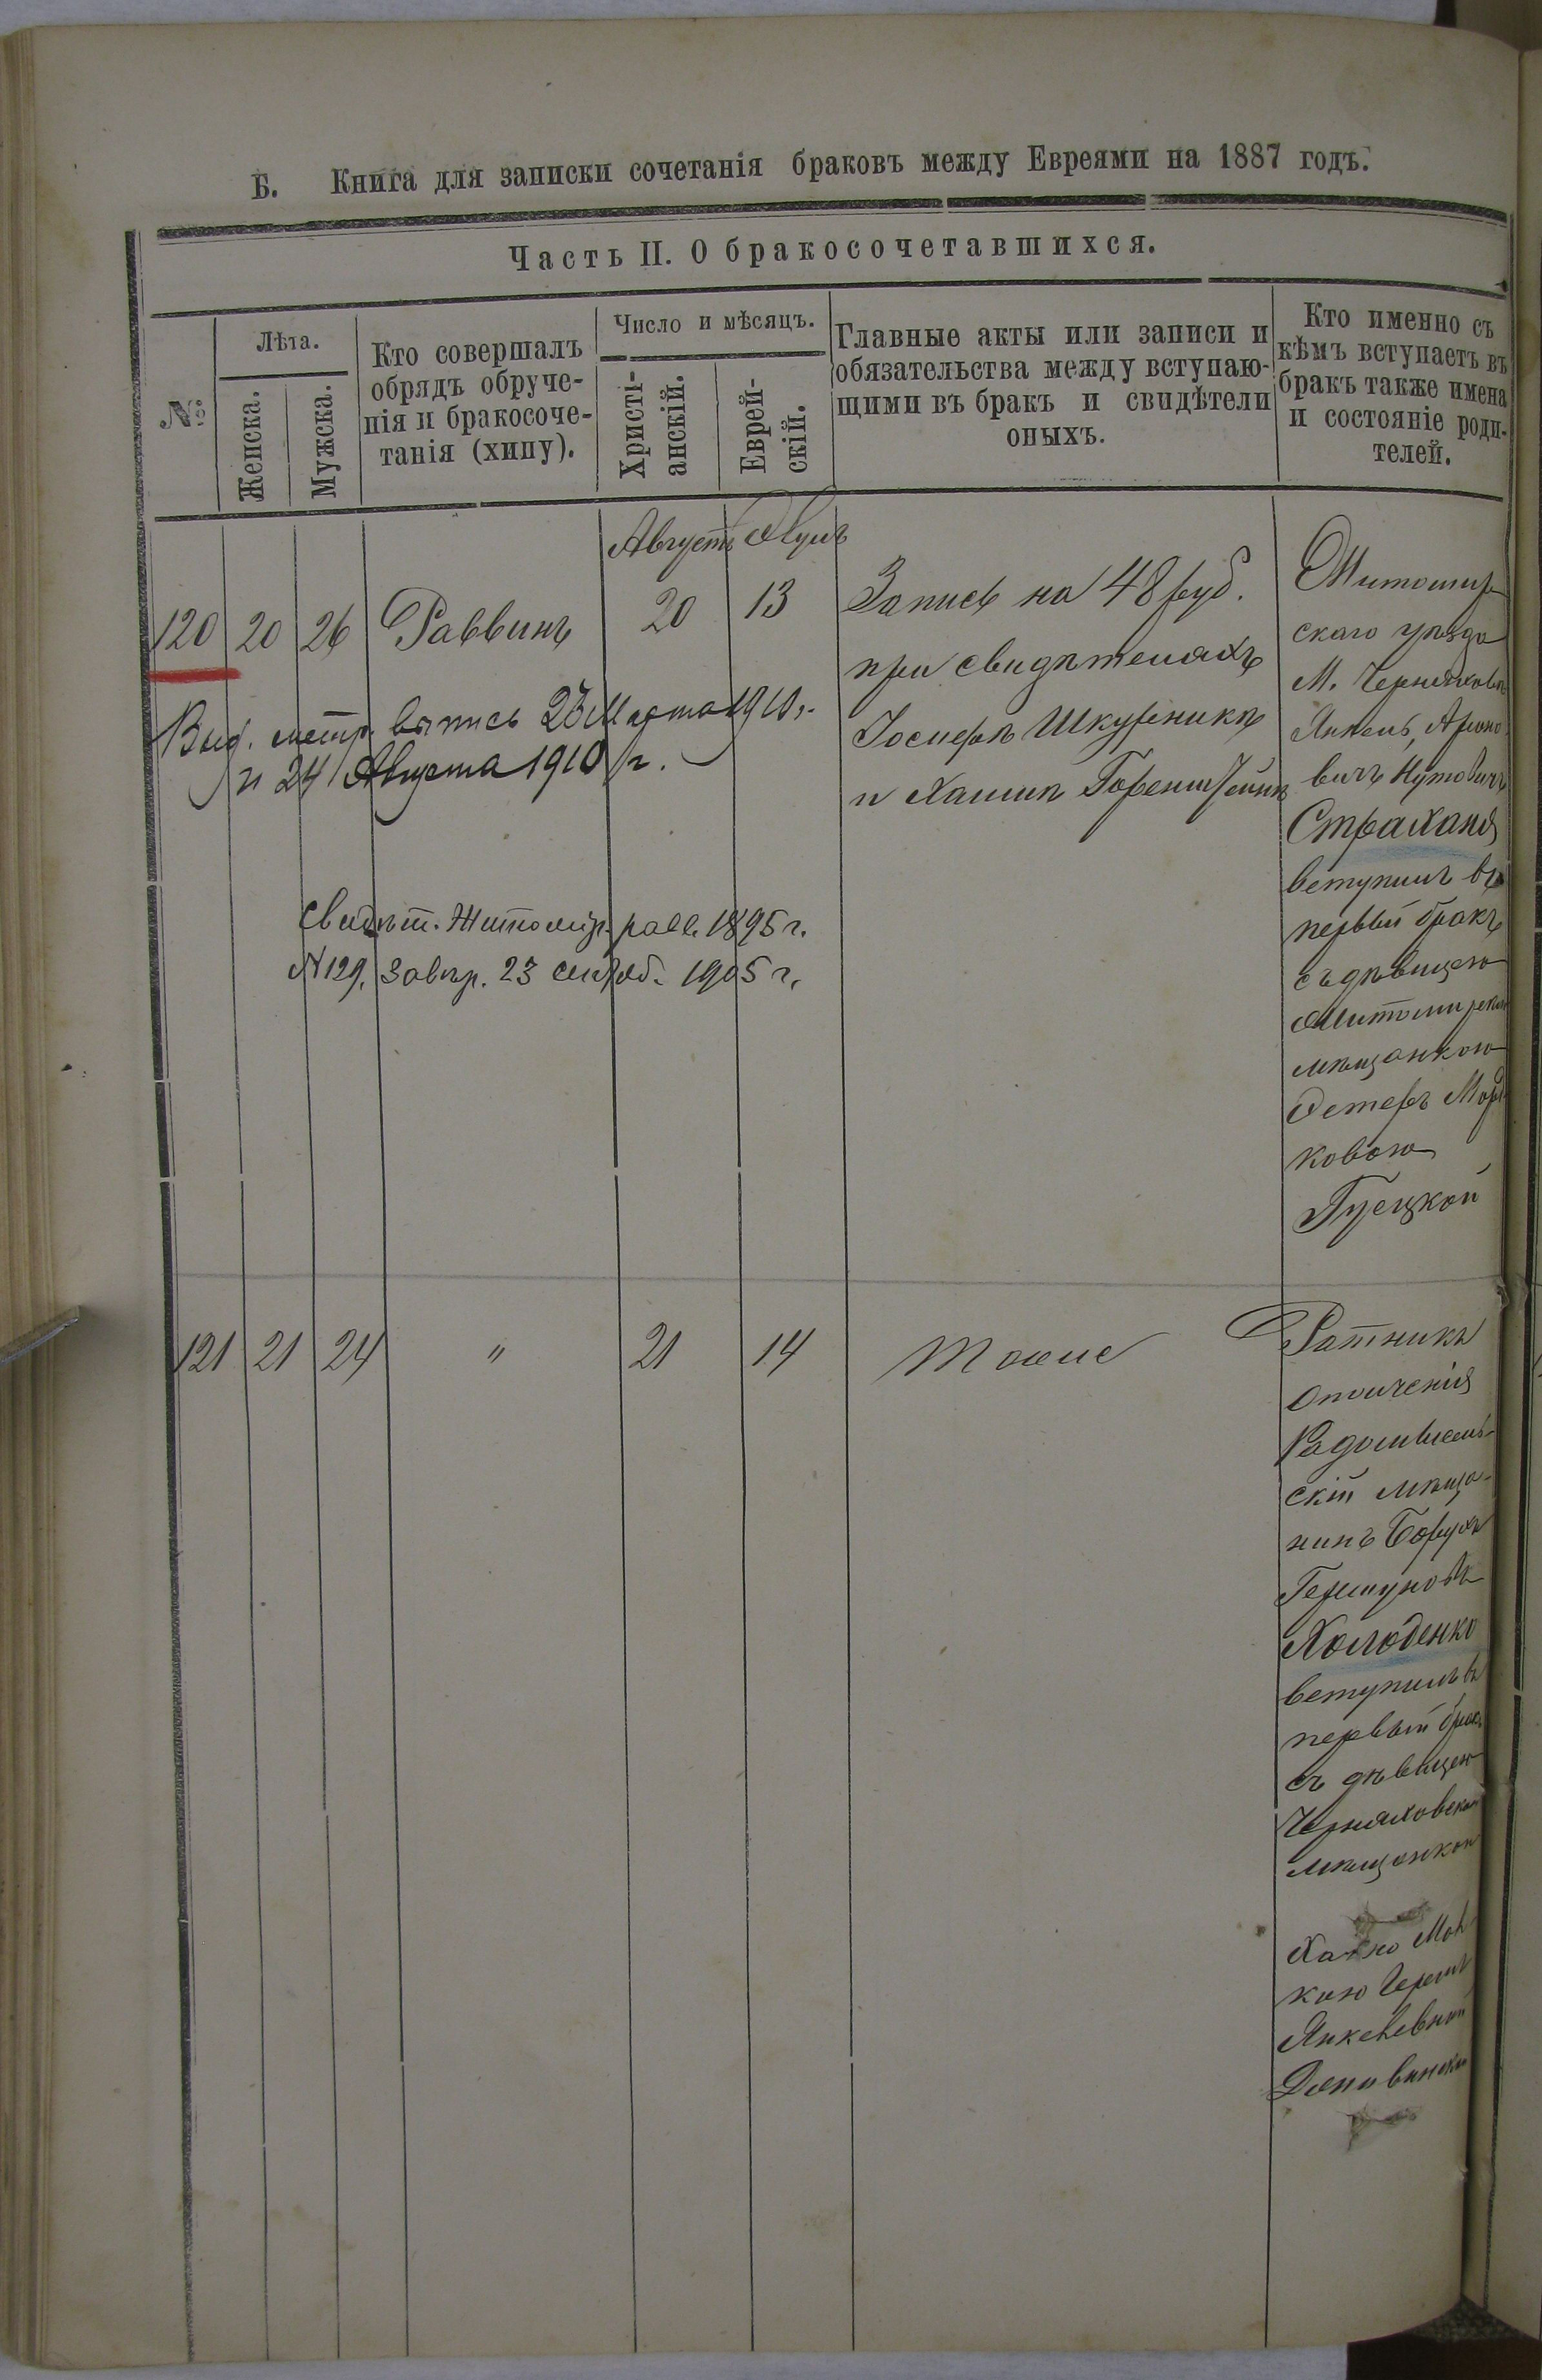 Б. Книга для записки сочетанія браковъ между Евреями на 1887 годъ.
Часть II. О бракосочетавшихся.
№
Лѣта.
Женска.
Мужска.
Кто совершалъ
обрядъ обруче-
нія и бракосоче-
танія (хипу).
Число и мѣсяцъ.
Христі-
анскій.
Еврей-
скій.
Главные акты или записи и
обязательства между вступаю-
щими въ бракъ и свидѣтели
оныхъ.
Кто именно съ
кѣмъ вступаетъ въ
бракъ также имена
и состояніе роди-
телей.
Августъ Элулъ
120 20 26 Раввинъ 20 13
Запись на 48 руб.
при свидѣтеляхъ
Іосифѣ Шкурникѣ
и Хаимѣ Горенштейнѣ
Житомир-
скаго уѣзда
М. Черняховъ
Янкель Ароно-
вичъ Нутовичъ
Страханъ
вступилъ въ
первый бракъ
съ дѣвицею
Житомирскою
мѣщанкою
Эстеръ Морд-
ковою
Гусцкой
Выд. метр. выпись 23 Марта 1910 г.
и 24 Августа 1910 г.
Свидѣт. Житомір. равв. 1895 г.
№ 129. Завѣр. 23 сентяб. 1905 г.
121 21 24 " 21 14 Тоже
Ратникъ
ополченія
Радомысль-
скій мѣща-
нинъ Борухъ
Гершуновъ
Холоденко
вступилъ въ
первый бракъ
съ дѣвицею
Черняховскою
мѣщанкою
Янкелевной